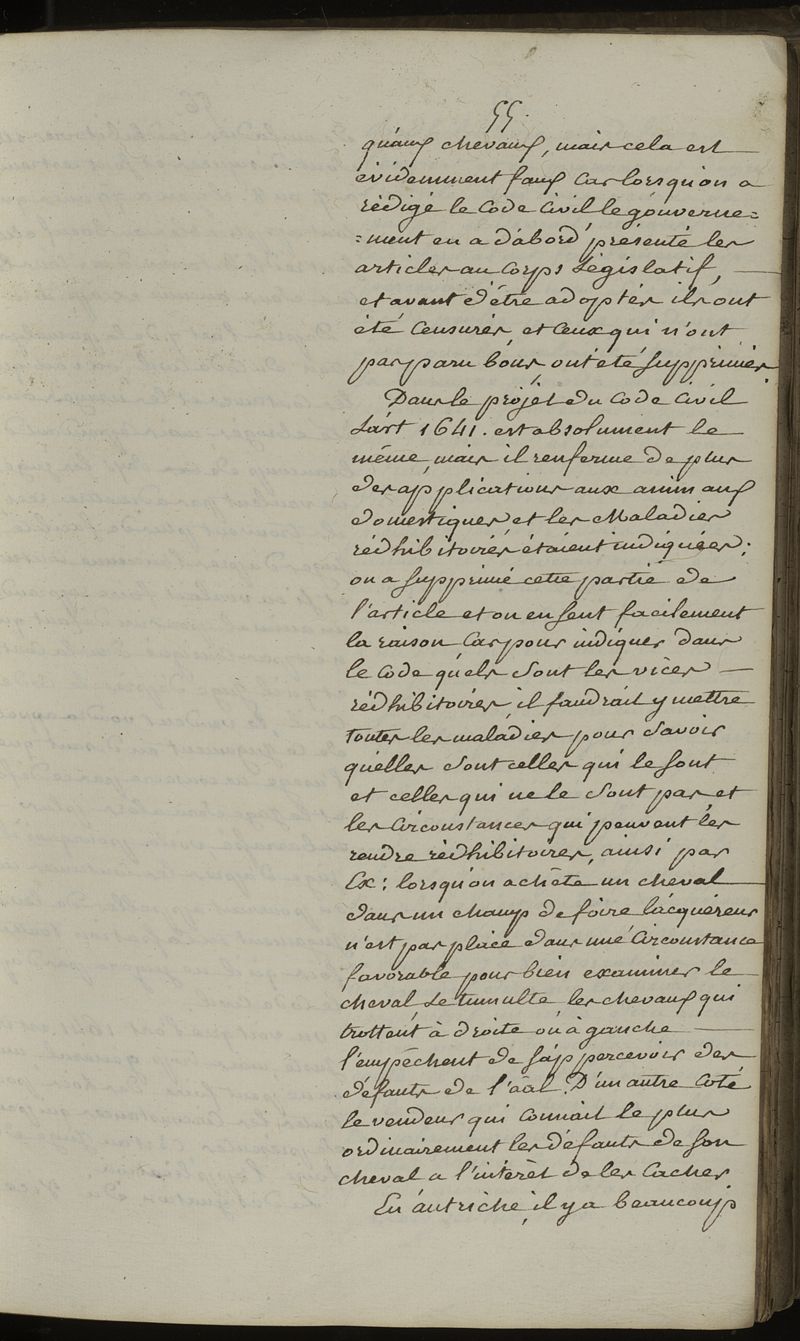 55.
qu'aux chevaux, mais cela est
évidemment faux car lorsqu'on a
rédigé le Code Civil le gouverne=
=ment en a d'abord présenté les
articles au Corps Législatif,
et avant d'être adoptés ils ont
été Censurés, et Ceux qui n'ont
pas paru bons, ont été supprimés
Dans le projet du Code Civil
L'art 1641. est absolument le
même, mais il renferme de plus
des applications aux animaux
domestiques et les Maladies
rédhibitoires étaient indiquées;
on a supprimé cette partie de
l'article et on en sent facilement
la raison Car pour indiquer dans
le Code quels sont les vices
rédhibitoires, il faudrait y mettre
toutes les maladies pour savoir
quelles sont celles qui le sont
et celles qui ne le sont pas, et
les Circonstances qui peuvent les
rendre rédhibitoires, ainsi par
Ex: lorsqu'on achête un cheval
dans un champ de foire l'acquéreur
n'est pas placé dans une Circonstance
favorable pour bien examiner le
cheval, Le tumulte les chevaux qui
trottent à droite ou à gauche
l'empêchent de s'appercevoir des
défauts de l'aâl. D'un autre Coté
le vendeur qui Connait le plus
ordinairement les défauts de son
cheval a l'intérêt de les Cacher
En autriche, il y a beaucoup